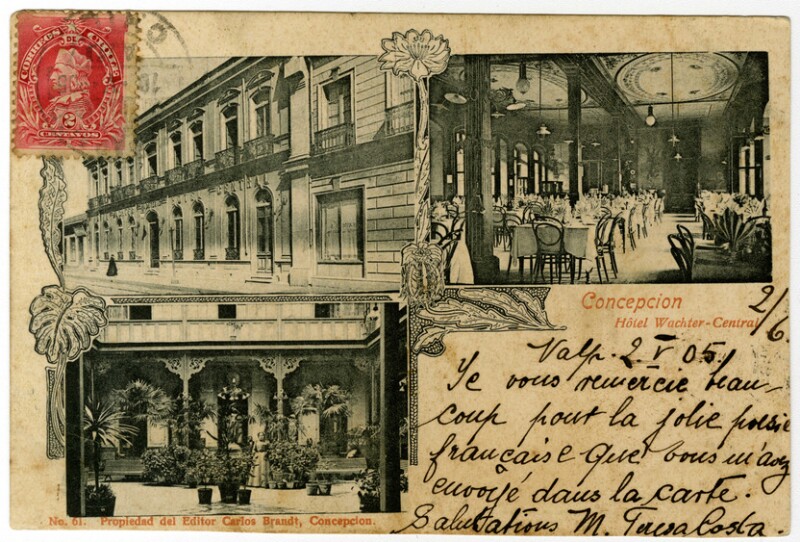 CORREOS DE CHILE
2
CENTAVOS
Concepcion
Hôtel Wachter-Central
2/6
Valp. 2 V 05.
Je vous remercie beau-
coup pout la jolie poesie
francaise que vous m'avez
envoyé dans la carte.
Salutations M. Teresa Costa.
No. 61. Propiedad del Editor Carlos Brandt, Concepcion.